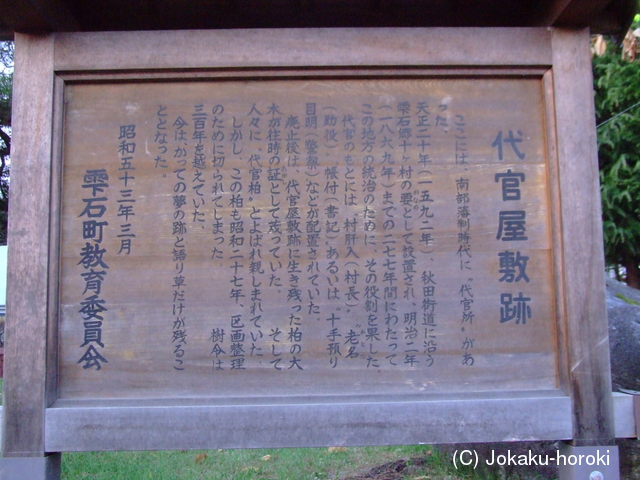 代官屋敷跡
ここには、南部藩制時代に〝代官所〟があ
った。
天正二十年(一五九二年)秋田街道に沿う
雫石郷十ヶ村の要として設置され、明治二年
(一八六九年)までの二七七年間にわたって
この地方の統治のために、その役割を果した
代官のもとには、村肝入(村長)、老名
(助役)、帳付(書記)、あるいは〝十手預り
目明(警察)などが配置されていた。
廃止後は、代官屋敷跡に生き残った柏の大
木が往時の証として茂っていた。そして
人々に〝代官柏〟とよばれ親しまれていた。
しかし、この柏も昭和二十七年、区画整理
のために切られてしまった。樹令は
三百年を越えていた。
今は、かつての夢の跡と語り草だけが残るこ
ととなった。
昭和五十三年三月
雫石町教育委員会
(C) Jokaku-horoki